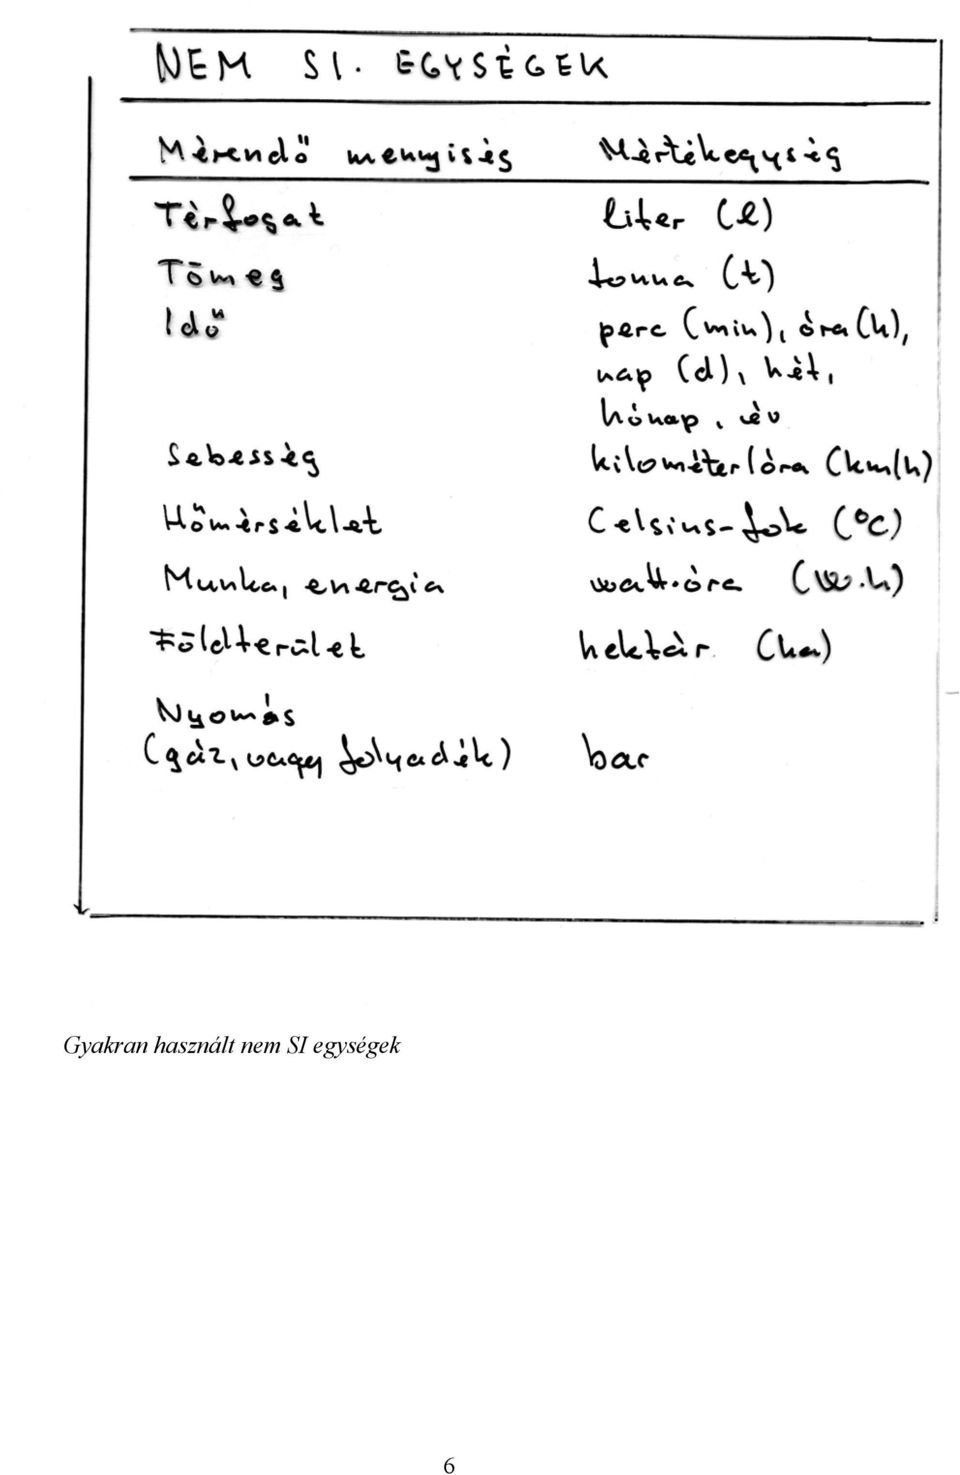 NEM SI. EGYSÉGEK
Mérendő mennyiség Mértékegység
Térfogat liter (l)
Tömeg tonna (t)
Idő perc (min), óra (h),
nap (d), hét,
hónap, év
Sebesség kilométer/óra (km/h)
Hőmérséklet Celsius-fok (°C)
Munka, energia watt·óra (W·h)
Földterület hektár (ha)
Nyomás
(gáz, vagy folyadék) bar
Gyakran használt nem SI egységek
6